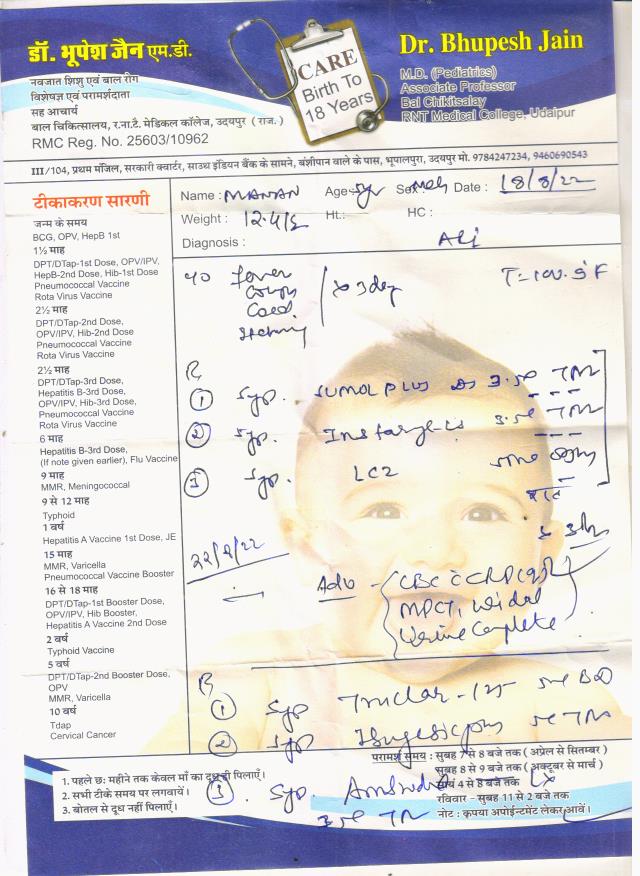 डॉ. भूपेश जैन एम.डी.
नवजात शिशु एवं बाल रोग
विशेषज्ञ एवं परामर्शदाता
सह आचार्य
बाल चिकित्सालय, र.ना.टै. मेडिकल कॉलेज, उदयपुर ( राज.)
RMC Reg. No. 25603/10962
CARE
Birth To
18 Years
Dr. Bhupesh Jain
M.D. (Pediatrics)
Associate Professor
Bal Chikitsalay
RNT Medical College, Udaipur
III/104, प्रथम मंजिल, सरकारी क्वार्टर, साउथ इंडियन बैंक के सामने, बंशीपान वाले के पास, भूपालपुरा, उदयपुर मो. 9784247234, 9460690543
टीकाकरण सारणी
जन्म के समय
BCG, OPV, HepB 1st
1½ माह
DPT/DTap-1st Dose, OPV/IPV,
HepB-2nd Dose, Hib-1st Dose
Pneumococcal Vaccine
Rota Virus Vaccine
2½ माह
DPT/DTap-2nd Dose,
OPV/IPV, Hib-2nd Dose
Pneumococcal Vaccine
Rota Virus Vaccine
2½ माह
DPT/DTap-3rd Dose,
Hepatitis B-3rd Dose,
OPV/IPV, Hib-3rd Dose,
Pneumococcal Vaccine
Rota Virus Vaccine
6 माह
Hepatitis B-3rd Dose,
(If note given earlier), Flu Vaccine
9 माह
MMR, Meningococcal
9 से 12 माह
Typhoid
1 वर्ष
Hepatitis A Vaccine 1st Dose, JE
15 माह
MMR, Varicella
Pneumococcal Vaccine Booster
16 से 18 माह
DPT/DTap-1st Booster Dose,
OPV/IPV, Hib Booster,
Hepatitis A Vaccine 2nd Dose
2 वर्ष
Typhoid Vaccine
5 वर्ष
DPT/DTap-2nd Booster Dose,
OPV
MMR, Varicella
10 वर्ष
Tdap
Cervical Cancer
Name : MANAN Age: 5yr Sex: Date : 18/8/22
Weight : Ht.: HC :
Diagnosis :
Fever
Cough
Cold
x 3 day
① Syp. SUMOL PLUS
② Syp.
③ Syp. LCZ
22/8/22
Adv - CBC CRP
MPCT, Widal
Urine Complete
① Syp BD
② Syp Ibugesic plus
③ Syp.
परामर्श समय : सुबह 7 से 8 बजे तक ( अप्रेल से सितम्बर )
सुबह 8 से 9 बजे तक ( अक्टूबर से मार्च )
सायं 4 से 8 बजे तक
रविवार - सुबह 11 से 2 बजे तक
नोट : कृपया अपोईन्टमेंट लेकर आवें।
1. पहले छ: महीने तक केवल माँ का दूध ही पिलाएँ।
2. सभी टीके समय पर लगवायें।
3. बोतल से दूध नहीं पिलाएँ।